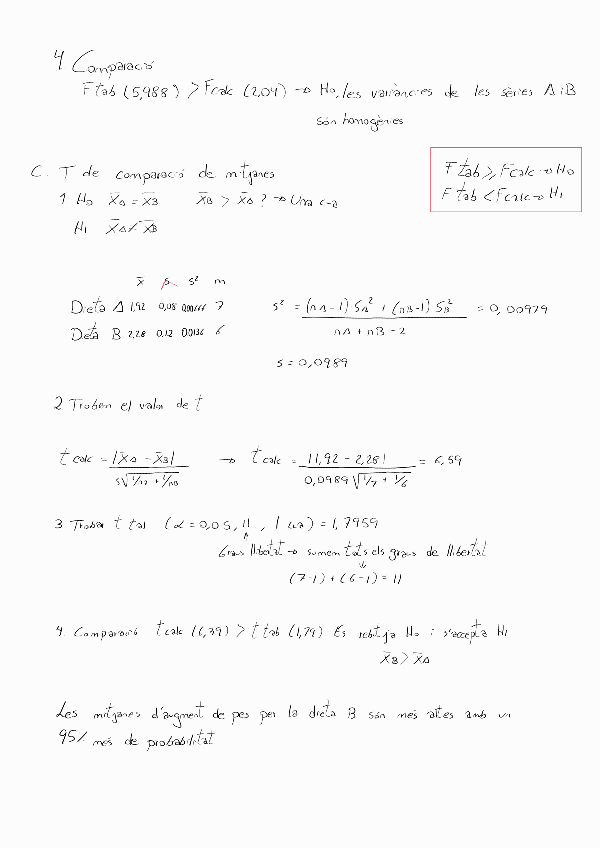 4 Comparació
F tab (5,988) > Fcalc (2,04) → Ho, les variàncies de les sèries A i B
són homogènies
C. T de comparació de mitjanes
F tab ⩾ Fcalc → Ho
F tab < Fcalc → H1
1 Ho X̄A = X̄B X̄B > X̄A ? → Una c-a
H1 X̄A ≠ X̄B
x̄ s s² n
Dieta A 1,92 0,08 7
Dieta B 2,28 0,12 0,0136 6
s² = (nA-1) SA² + (nB-1) SB² / nA + nB - 2 = 0,00979
s = 0,0989
2 Troben el valor de t
t calc = |X̄A - X̄B| / s√1/nA + 1/nB → t calc = |1,92 - 2,28| / 0,0989 √1/7 + 1/6 = 6,59
3 Troben t tal (α = 0,05, 11, 1 cua) = 1,7959
Graus llibertat → sumem tots els graus de llibertat
(7-1) + (6-1) = 11
4. Comparació t calc (6,39) > t tab (1,79) Es rebutja Ho i s'accepta H1
X̄B > X̄A
Les mitjanes d'augment de pes per la dieta B són més altes amb un
95% més de probabilitat